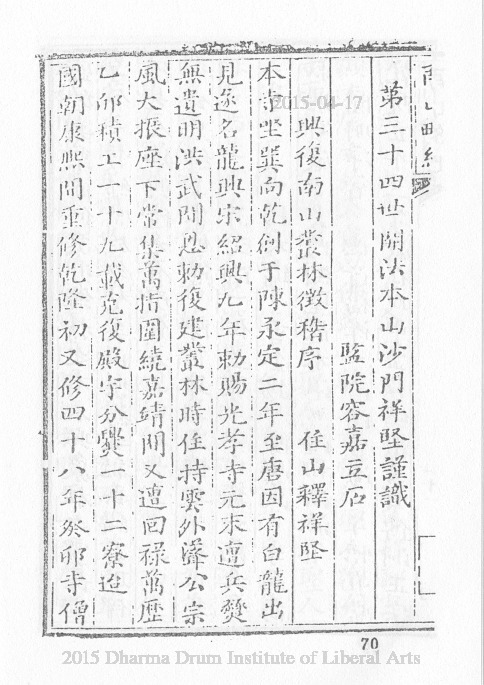 第三十四世開法本山沙門祥堅謹識
監院容嘉立石
興復南山叢林徵稽序 住山釋祥堅
本寺坐巽向乾創于陳永定二年至唐因有白龍出
見遂名龍興宋紹興九年勅賜光孝寺元末遭兵燹
無遺明洪武間恩勅復建叢林時住持雲外澤公宗
風大振座下常集萬指圍繞嘉靖間又遭回祿萬歷
乙卯積工一十九載克復殿宇分爨一十二寮迨
國朝康熙間重修乾隆初又修四十八年癸卯寺僧
70
2015-04-17
2015 Dharma Drum Institute of Liberal Arts